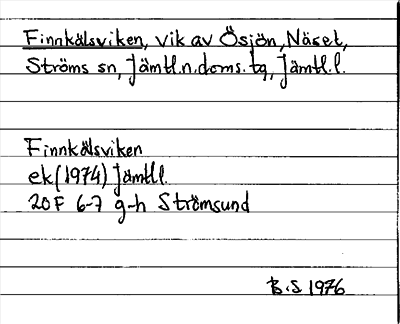 Finnkälsviken, vik av Ösjön, Näset,
Ströms sn, Jämtl.n.doms.tg, Jämtl.l.
Finnkälsviken
ek (1974) Jämtl.l.
20F 6-7 g-h Strömsund
B.S 1976